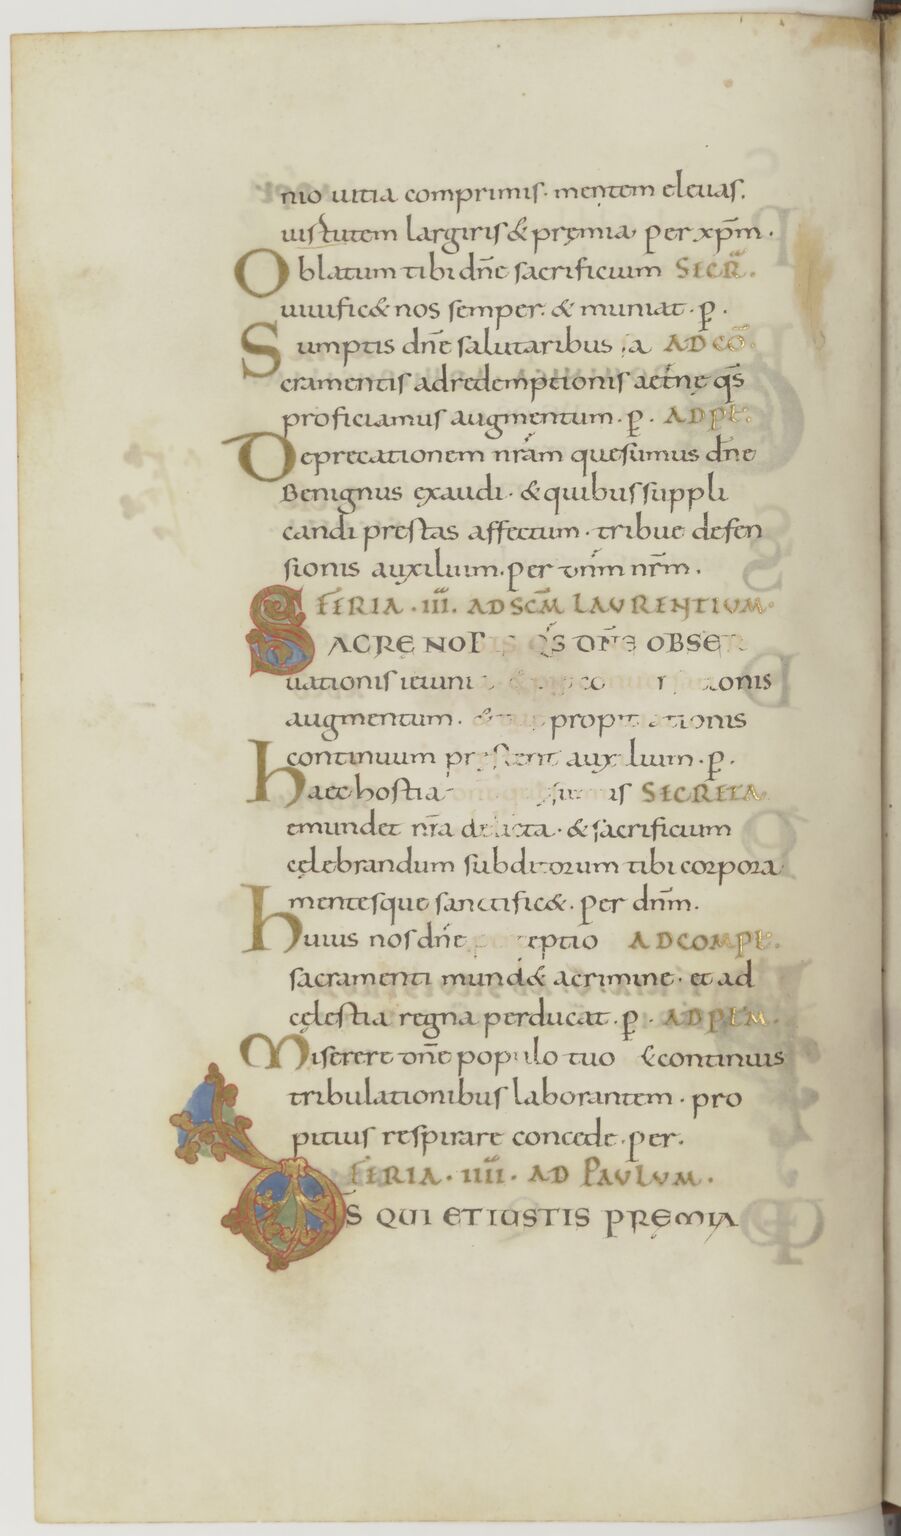 nio uitia comprimis· mentem eleuas.
uirtutem largiris & pręmia per xp̄m·
Oblatum tibi dn̄e sacrificium SECR̄.
uiuific& nos semper. & muniat· p̄.
Sumptis dn̄e salutaribus sa AD CŌ.
cramentis ad redemptionis aet̄nę qs̄
proficiamus augmentum· p̄. AD PL̄.
Deprecationem nrām quesumus dn̄e
Benignus exaudi· & quibus suppli
candi prestas affectum· tribue defen
sionis auxilium. per dnm̄ nrm̄.
FERIA·III· AD SCM̄ LAURENTIUM·
SACRE NOBIS QS̄ DN̄E OBSER
uationis ieiuni
augmentum· & propitiationis
continuum prestent auxilium· p̄.
haec hostia SECRETA
emundet nrā delicta· & sacrificium
cęlebrandum subditorum tibi corpora
mentesque sanctific&. per dnm̄.
huius nos dn̄e perceptio AD COMPL̄.
sacramenti mund& a crimine· et ad
cęlestia regna perducat· p̄. AD PLM̄.
Miserere dn̄e populo tuo & continuis
tribulationibus laborantem· pro
pitius respirare concede· per.
FERIA·IIII· AD PAULUM·
DS̄ QUI ET IUSTIS PRĘMIA